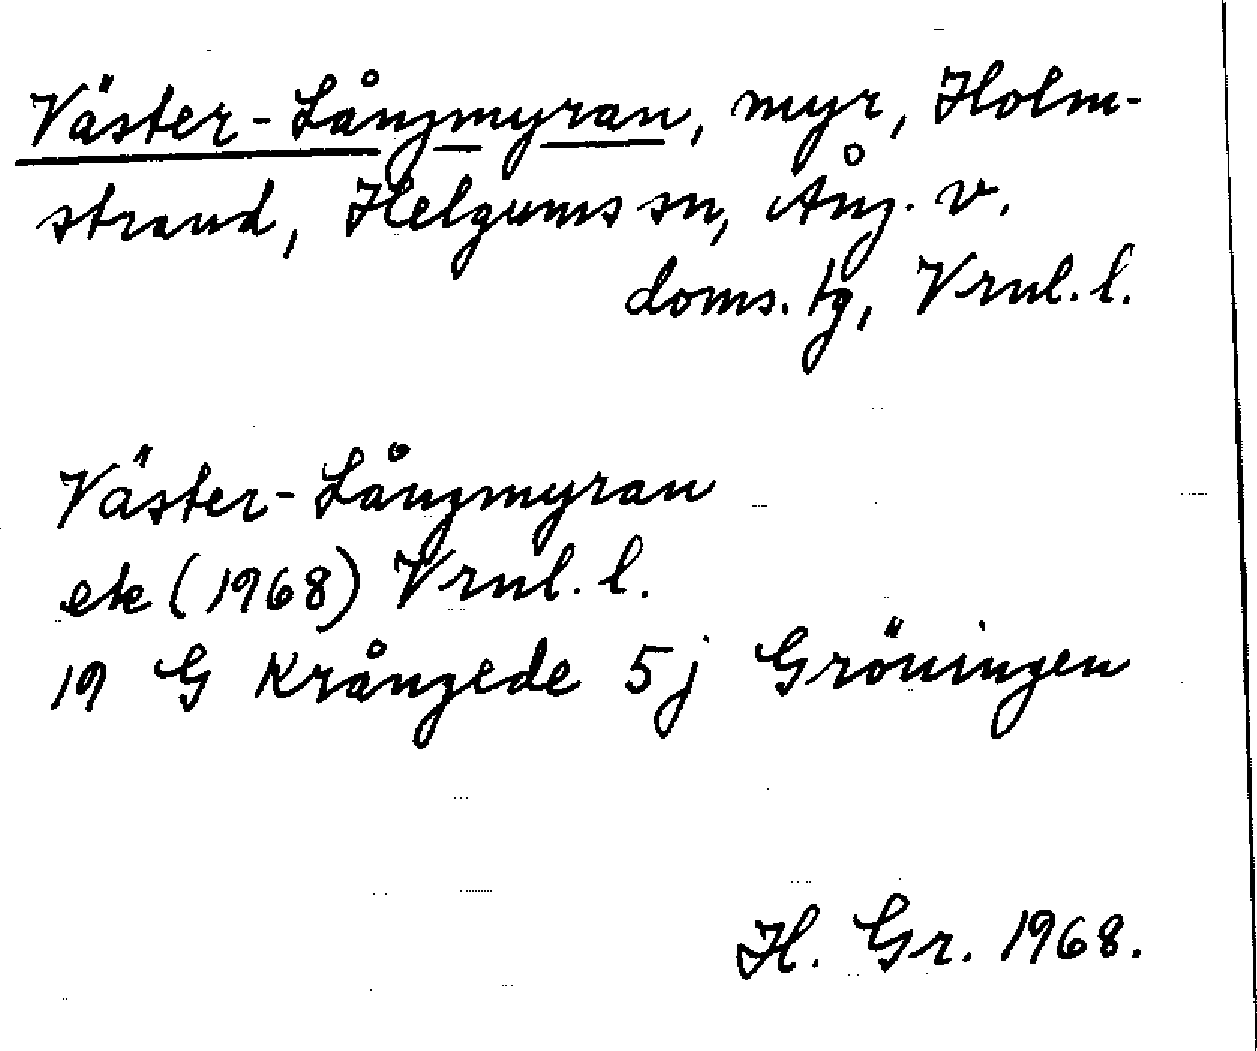 Väster-Långmyran, myr, Holm-
strand, Helgums sn, Ång. v.
doms. tg, Vrnl. l.
Väster-Långmyran
ek (1968) Vrnl. l.
19 G Krångede 5j Gröningen
H. Gr. 1968.